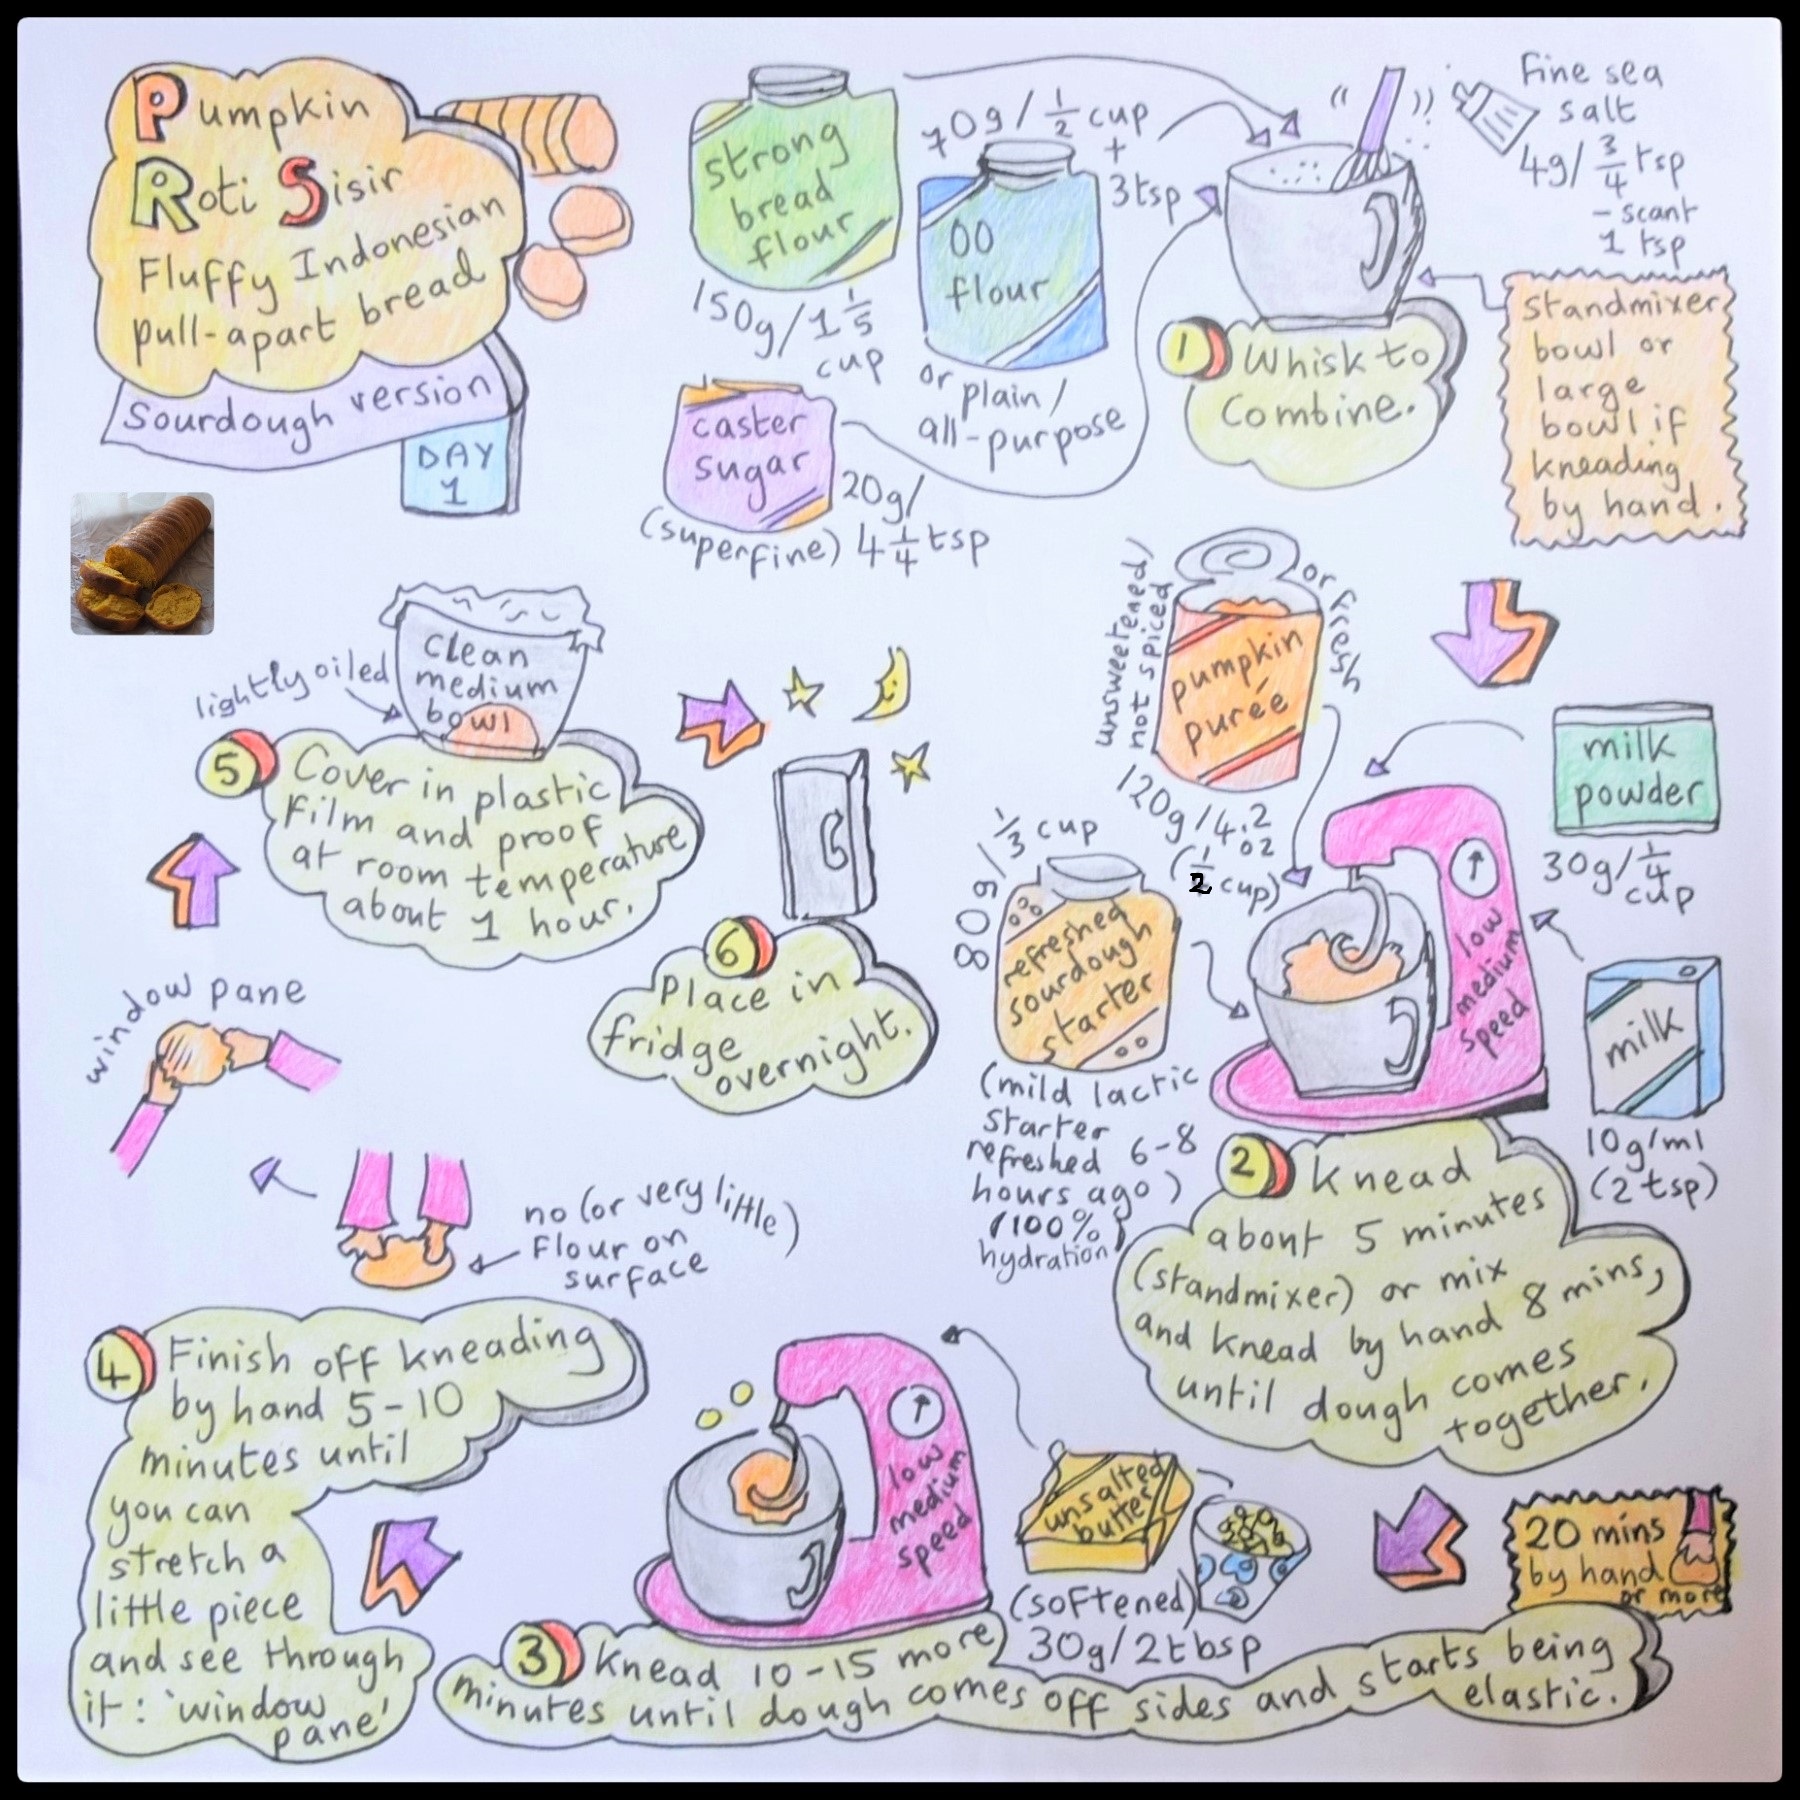 Pumpkin
Roti Sisir
Fluffy Indonesian
pull-apart bread
Sourdough version
DAY
1
strong
bread
flour
150g/1 1/5
cup
70g/ 1/2 cup
+
3tsp
00
flour
or plain/
all-purpose
caster
sugar
(superfine)
20g/
4 1/4 tsp
Fine sea
salt
4g/ 3/4 tsp
- scant
1 tsp
1 Whisk to
combine.
standmixer
bowl or
large
bowl if
kneading
by hand.
unsweetened/
not spiced
or fresh
pumpkin
purée
120g/4.2
oz
(1/2 cup)
milk
powder
30g/ 1/4
cup
milk
10g/ml
(2 tsp)
80g/ 1/3 cup
refreshed
sourdough
starter
(mild lactic
starter
refreshed 6-8
hours ago)
(100%
hydration)
low
medium
speed
2 Knead
about 5 minutes
(standmixer) or mix
and knead by hand 8 mins,
until dough comes
together.
20 mins
by hand
or more
unsalted
butter
(softened)
30g/2tbsp
low
medium
speed
3 Knead 10-15 more
minutes until dough comes off sides and starts being
elastic.
4 Finish off kneading
by hand 5-10
minutes until
you can
stretch a
little piece
and see through
it: 'window
pane'
no (or very little)
flour on
surface
window pane
lightly oiled
clean
medium
bowl
5 Cover in plastic
film and proof
at room temperature
about 1 hour.
6
Place in
fridge
overnight.